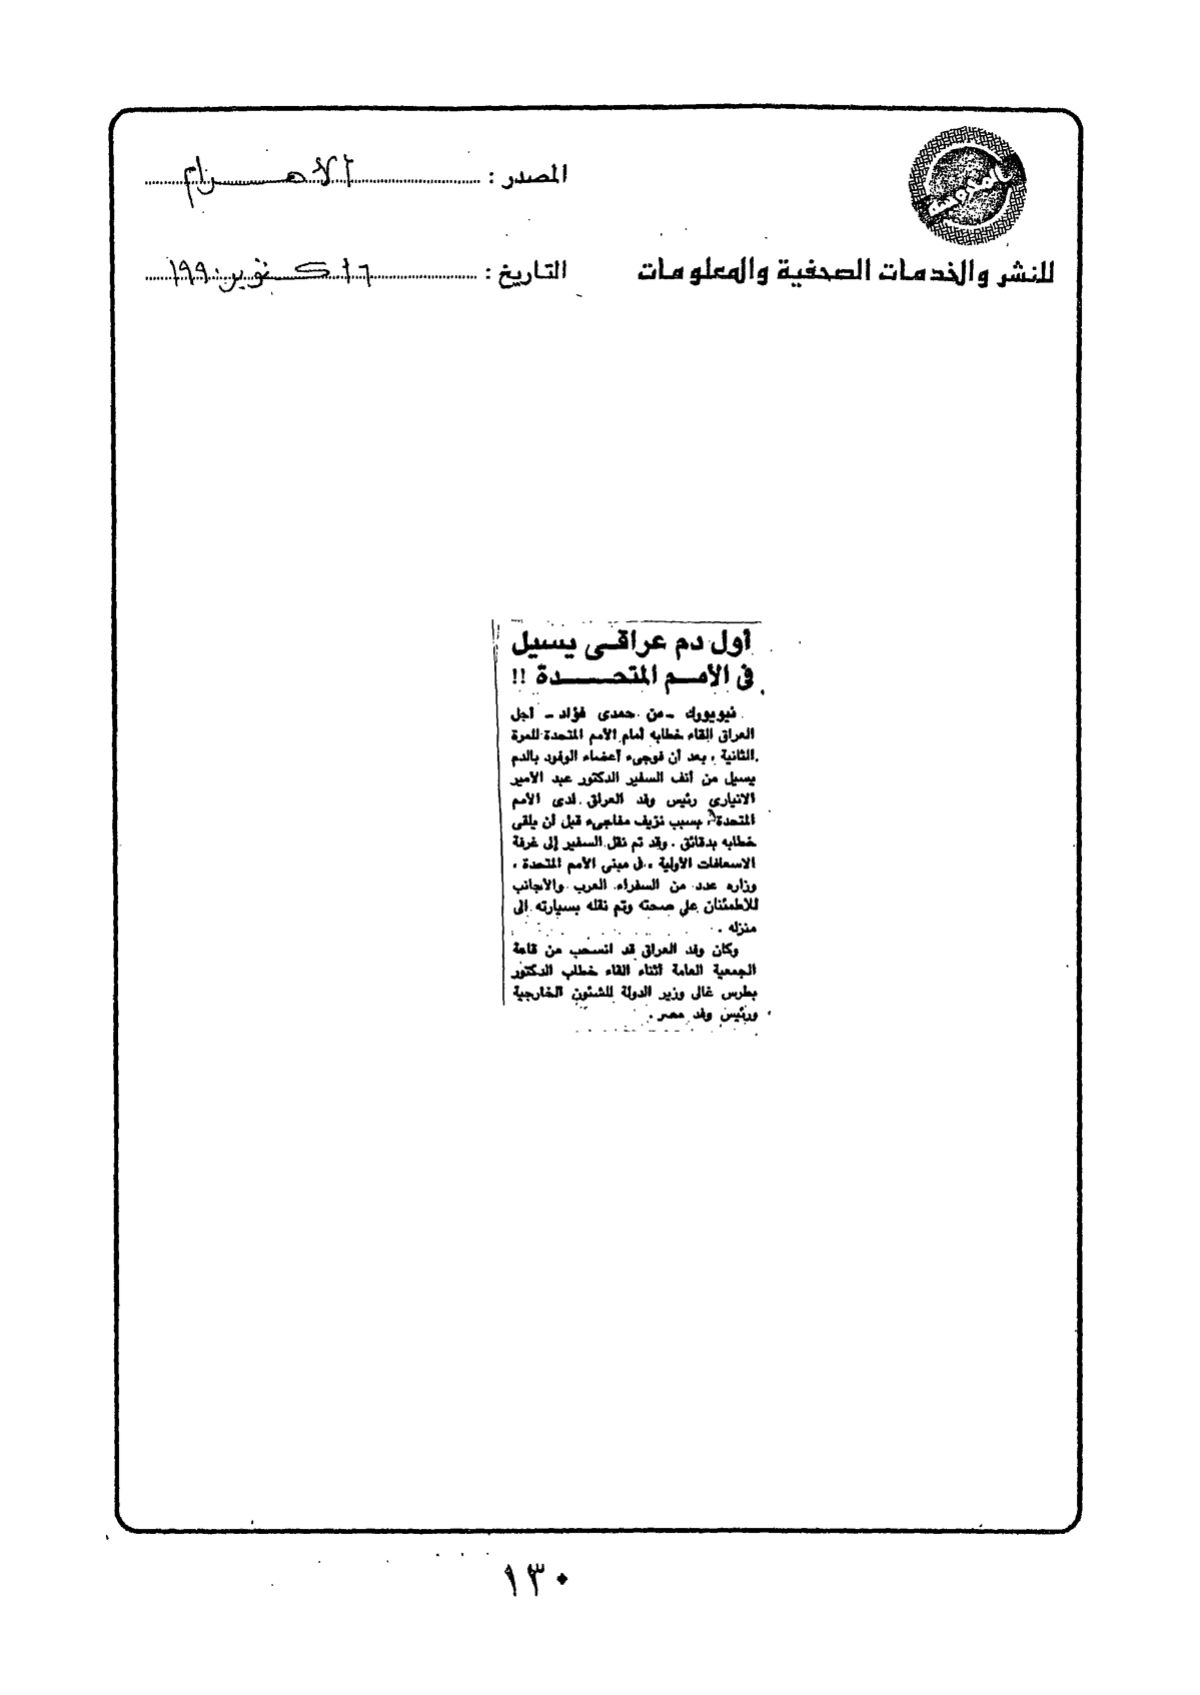 المصدر : الأهـــرام
للنشر والخدمات الصحفية والمعلومات
التاريخ : ٦ أكـتوبر ١٩٩٠
أول دم عراقــى يسيل
فى الأمــم المتحــــدة !!
نيويورك - من حمدى فؤاد - أجل
العراق القاء خطابه أمام الأمم المتحدة للمرة
الثانية ، بعد أن فوجىء أعضاء الوفود بالدم
يسيل من أنف السفير الدكتور عبد الأمير
الانبارى رئيس وفد العراق لدى الأمم
المتحدة ، بسبب نزيف مفاجىء قبل أن يلقى
خطابه بدقائق . وقد تم نقل السفير إلى غرفة
الاسعافات الأولية ، فى مبنى الأمم المتحدة ،
وزاره عدد من السفراء العرب والأجانب
للاطمئنان على صحته وتم نقله بسيارته إلى
منزله .
وكان وفد العراق قد انسحب من قاعة
الجمعية العامة أثناء القاء خطاب الدكتور
بطرس غالى وزير الدولة للشئون الخارجية
ورئيس وفد مصر .
١٣٠